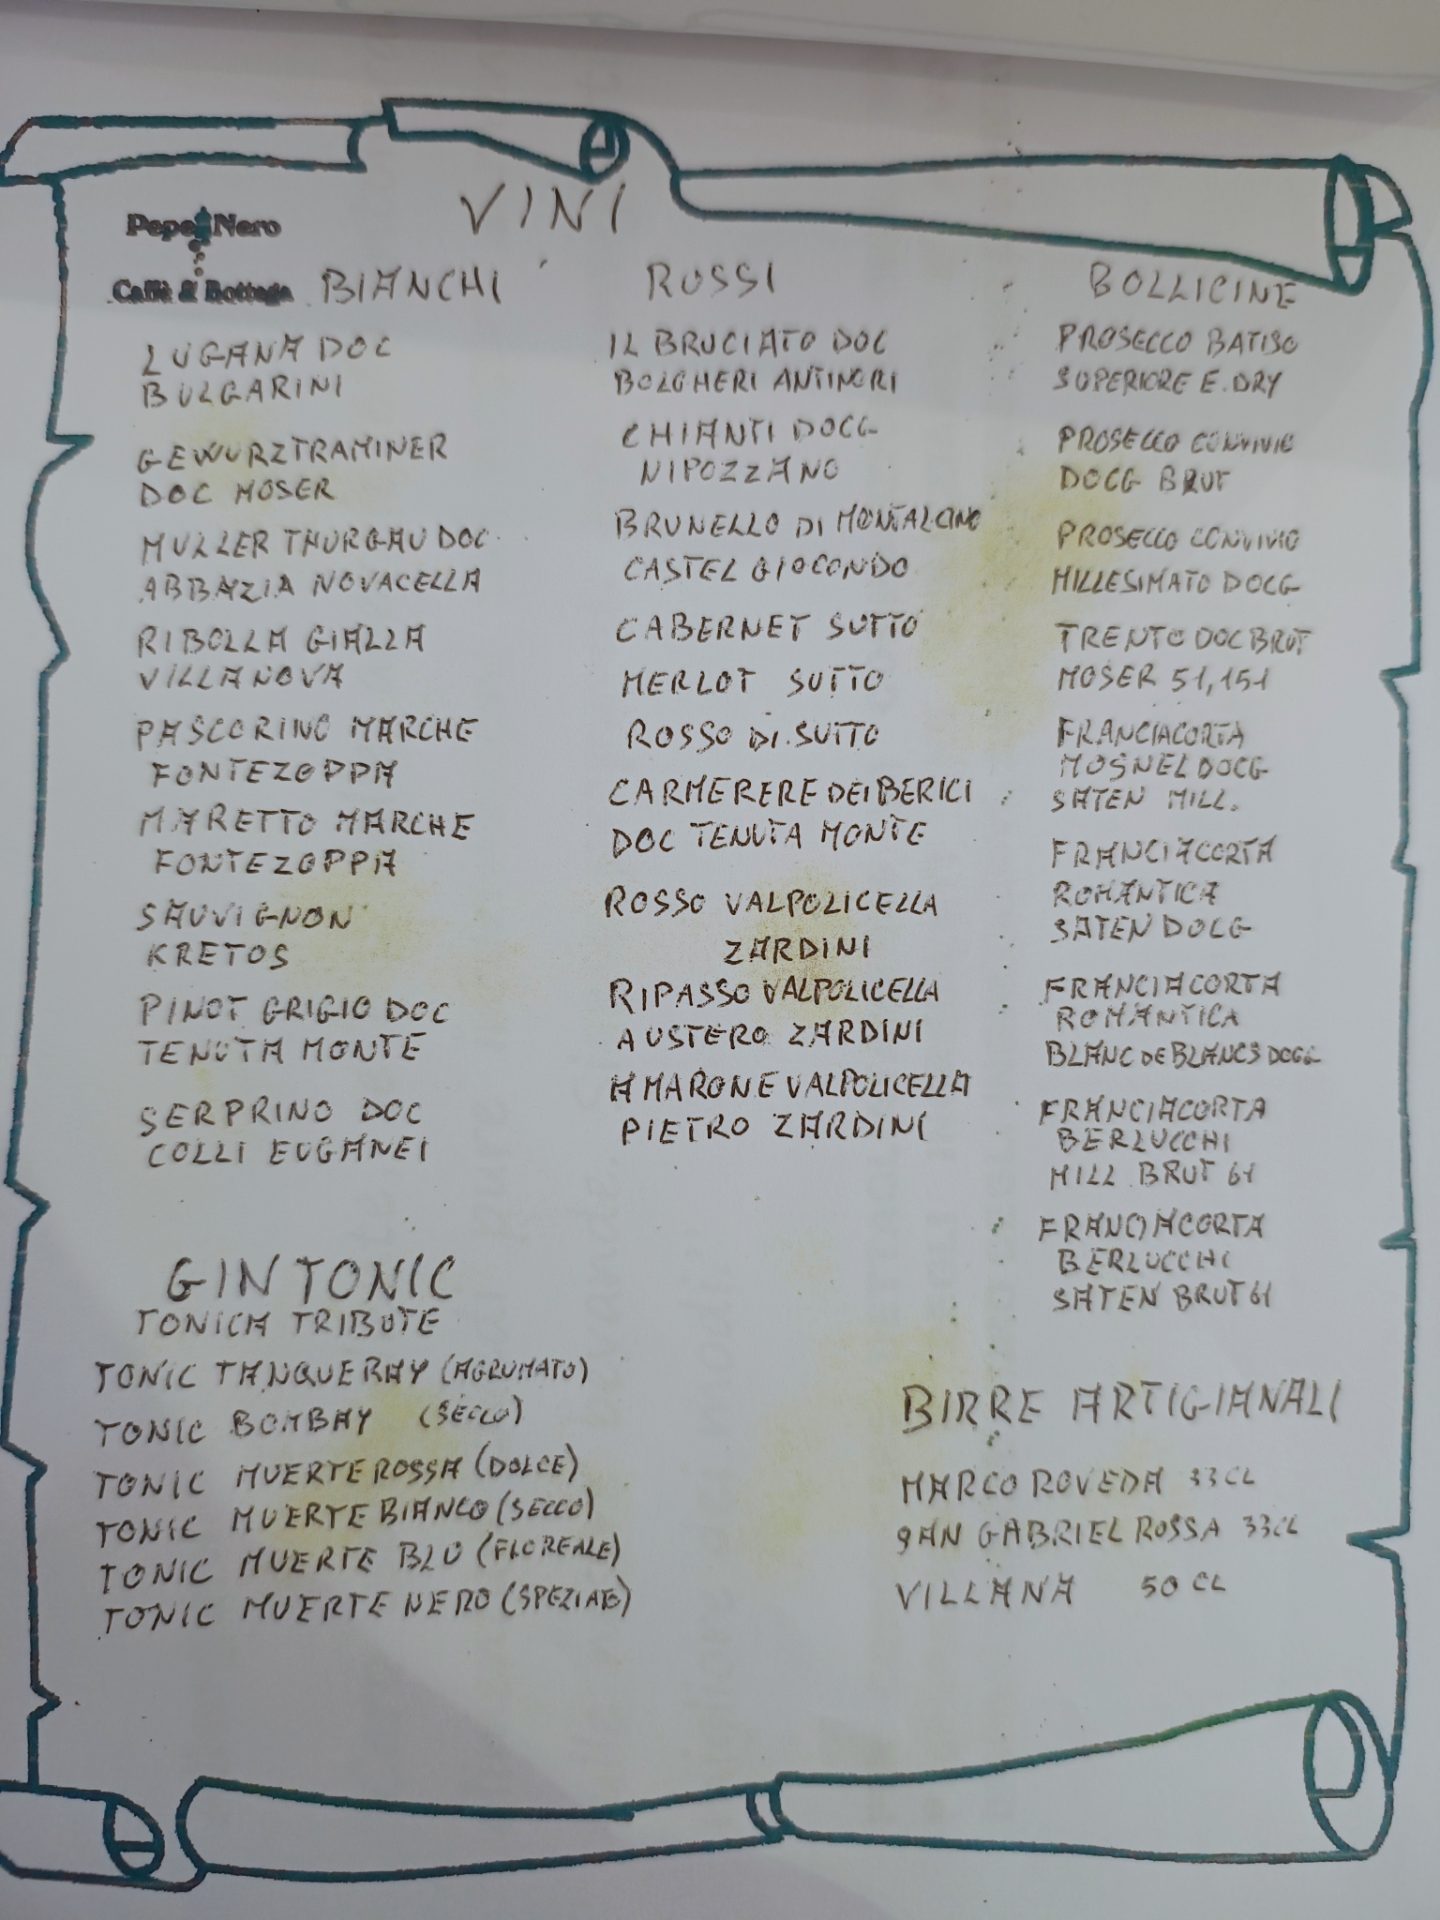 VINI
Pepe Nero
Caffè & Bottega
BIANCHI
LUGANA DOC
BULGARINI
GEWURZTRAMINER
DOC MOSER
MULLER THURGAU DOC
ABBAZIA NOVACELLA
RIBOLLA GIALLA
VILLANOVA
PASCORINO MARCHE
FONTEZOPPA
MARETTO MARCHE
FONTEZOPPA
SAUVIGNON
KRETOS
PINOT GRIGIO DOC
TENUTA MONTE
SERPRINO DOC
COLLI EUGANEI
ROSSI
IL BRUCIATO DOC
BOLGHERI ANTINORI
CHIANTI DOCG
NIPOZZANO
BRUNELLO DI MONTALCINO
CASTEL GIOCONDO
CABERNET SUTTO
MERLOT SUTTO
ROSSO DI SUTTO
CARMERERE DEI BERICI
DOC TENUTA MONTE
ROSSO VALPOLICELLA
ZARDINI
RIPASSO VALPOLICELLA
AUSTERO ZARDINI
AMARONE VALPOLICELLA
PIETRO ZARDINI
BOLLICINE
PROSECCO BATISO
SUPERIORE E. DRY
PROSECCO CONVIVIO
DOCG BRUT
PROSECCO CONVIVIO
MILLESIMATO DOCG
TRENTO DOC BRUT
MOSER 51,151
FRANCIACORTA
MOSNEL DOCG
SATEN MILL.
FRANCIACORTA
ROMANTICA
SATEN DOCG
FRANCIACORTA
ROMANTICA
BLANC DE BLANCS DOCG
FRANCIACORTA
BERLUCCHI
MILL BRUT 61
FRANCIACORTA
BERLUCCHI
SATEN BRUT 61
GIN TONIC
TONICA TRIBUTE
TONIC TANQUERAY (AGRUMATO)
TONIC BOMBAY (SECCO)
TONIC MUERTE ROSSA (DOLCE)
TONIC MUERTE BIANCO (SECCO)
TONIC MUERTE BLU (FLOREALE)
TONIC MUERTE NERO (SPEZIATO)
BIRRE ARTIGIANALI
MARCO ROVEDA 33 CL
SAN GABRIEL ROSSA 33 CL
VILLANA 50 CL